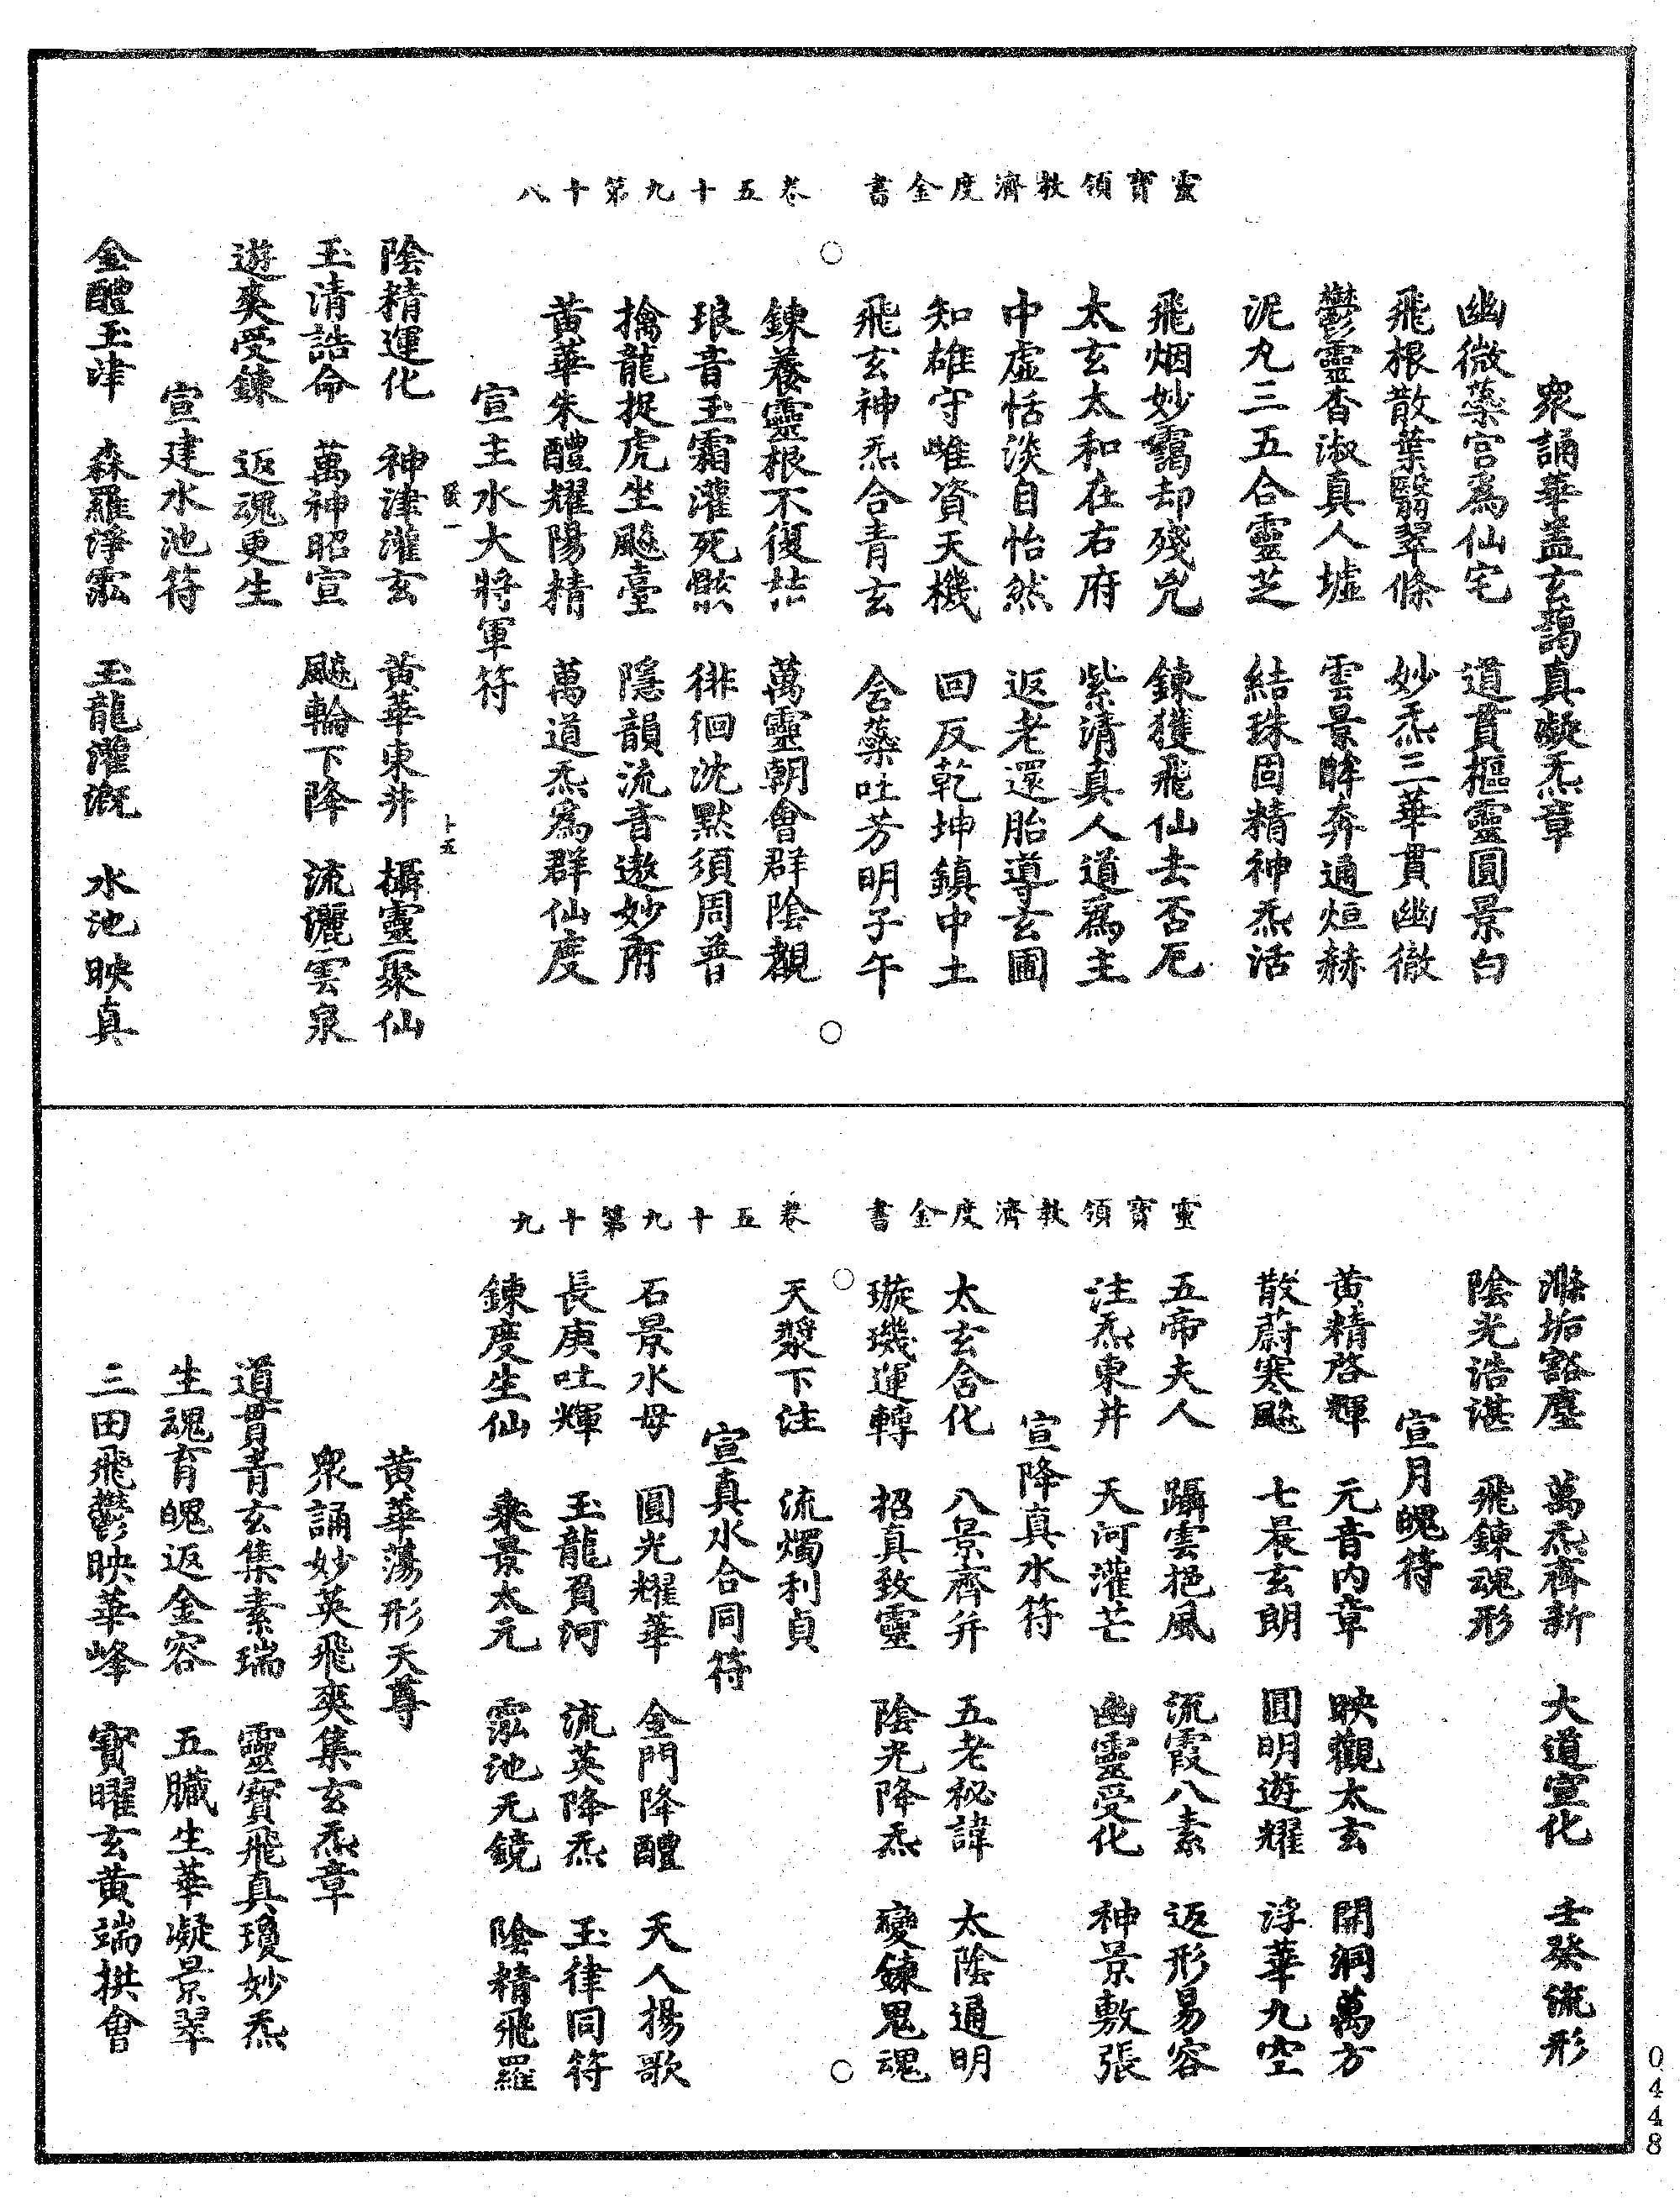 靈寶領教濟度金書　卷五十九第十八
衆誦華蓋玄藹真凝炁章
幽微蘂宫爲仙宅　道貫樞靈圓景白
飛根散葉翳翠條　妙炁三華貫幽徹
鬱靈香淑真人墟　雲景眸奔通烜赫
泥丸三五合靈芝　結珠固精神炁活
飛烟妙靄却殘兇　鍊獲飛仙去否厄
太玄太和在右府　紫清真人道爲主
中虚恬淡自怡然　返老還胎導玄圃
知雄守雌資天機　回反乾坤鎮中土
飛玄神炁合青玄　含蘂吐芳明子午
鍊養靈根不復枯　萬靈朝會群陰覩
琅音玉霜灌死骸　徘徊沈默須周普
擒龍捉虎坐飈臺　隱韻流音遨妙爾
黄華朱醴耀陽精　萬道炁爲群仙度
宣主水大將軍符
陰精運化　神津灌玄　黄華東井　攝靈聚仙
玉清誥命　萬神昭宣　飈輪下降　流灑雲泉
遊爽受鍊　返魂更生
宣建水池符
金醴玉津　森羅淨泓　玉龍灌溉　水池映真
靈寶領教濟度金書　卷五十九第十九
滌垢豁塵　萬炁齊新　大道宣化　壬癸流形
陰光浩湛　飛鍊魂形
宣月魄符
黄精啓輝　元音内章　映觀太玄　開洞萬方
散蔚寒飈　七晨玄朗　圓明遊耀　浮華九空
五帝夫人　躡雲挹風　流霞八素　返形易容
注炁東井　天河灌芒　幽靈受化　神景敷張
宣降真水符
太玄含化　八景齊并　五老秘諱　太陰通明
璇璣運轉　招真致靈　陰光降炁　變鍊鬼魂
天漿下注　流燭利貞
宣真水合同符
石景水母　圓光耀華　金門降醴　天人揚歌
長庚吐輝　玉龍負河　流英降炁　玉律同符
鍊度生仙　乘景太元　泓池无鏡　陰精飛羅
黄華蕩形天尊
衆誦妙英飛爽集玄炁章
道貫青玄集素瑞　靈寶飛真瓊妙炁
生魂育魄返金容　五臟生華凝景翠
三田飛鬱映華峰　寶曜玄黄端拱會
0448